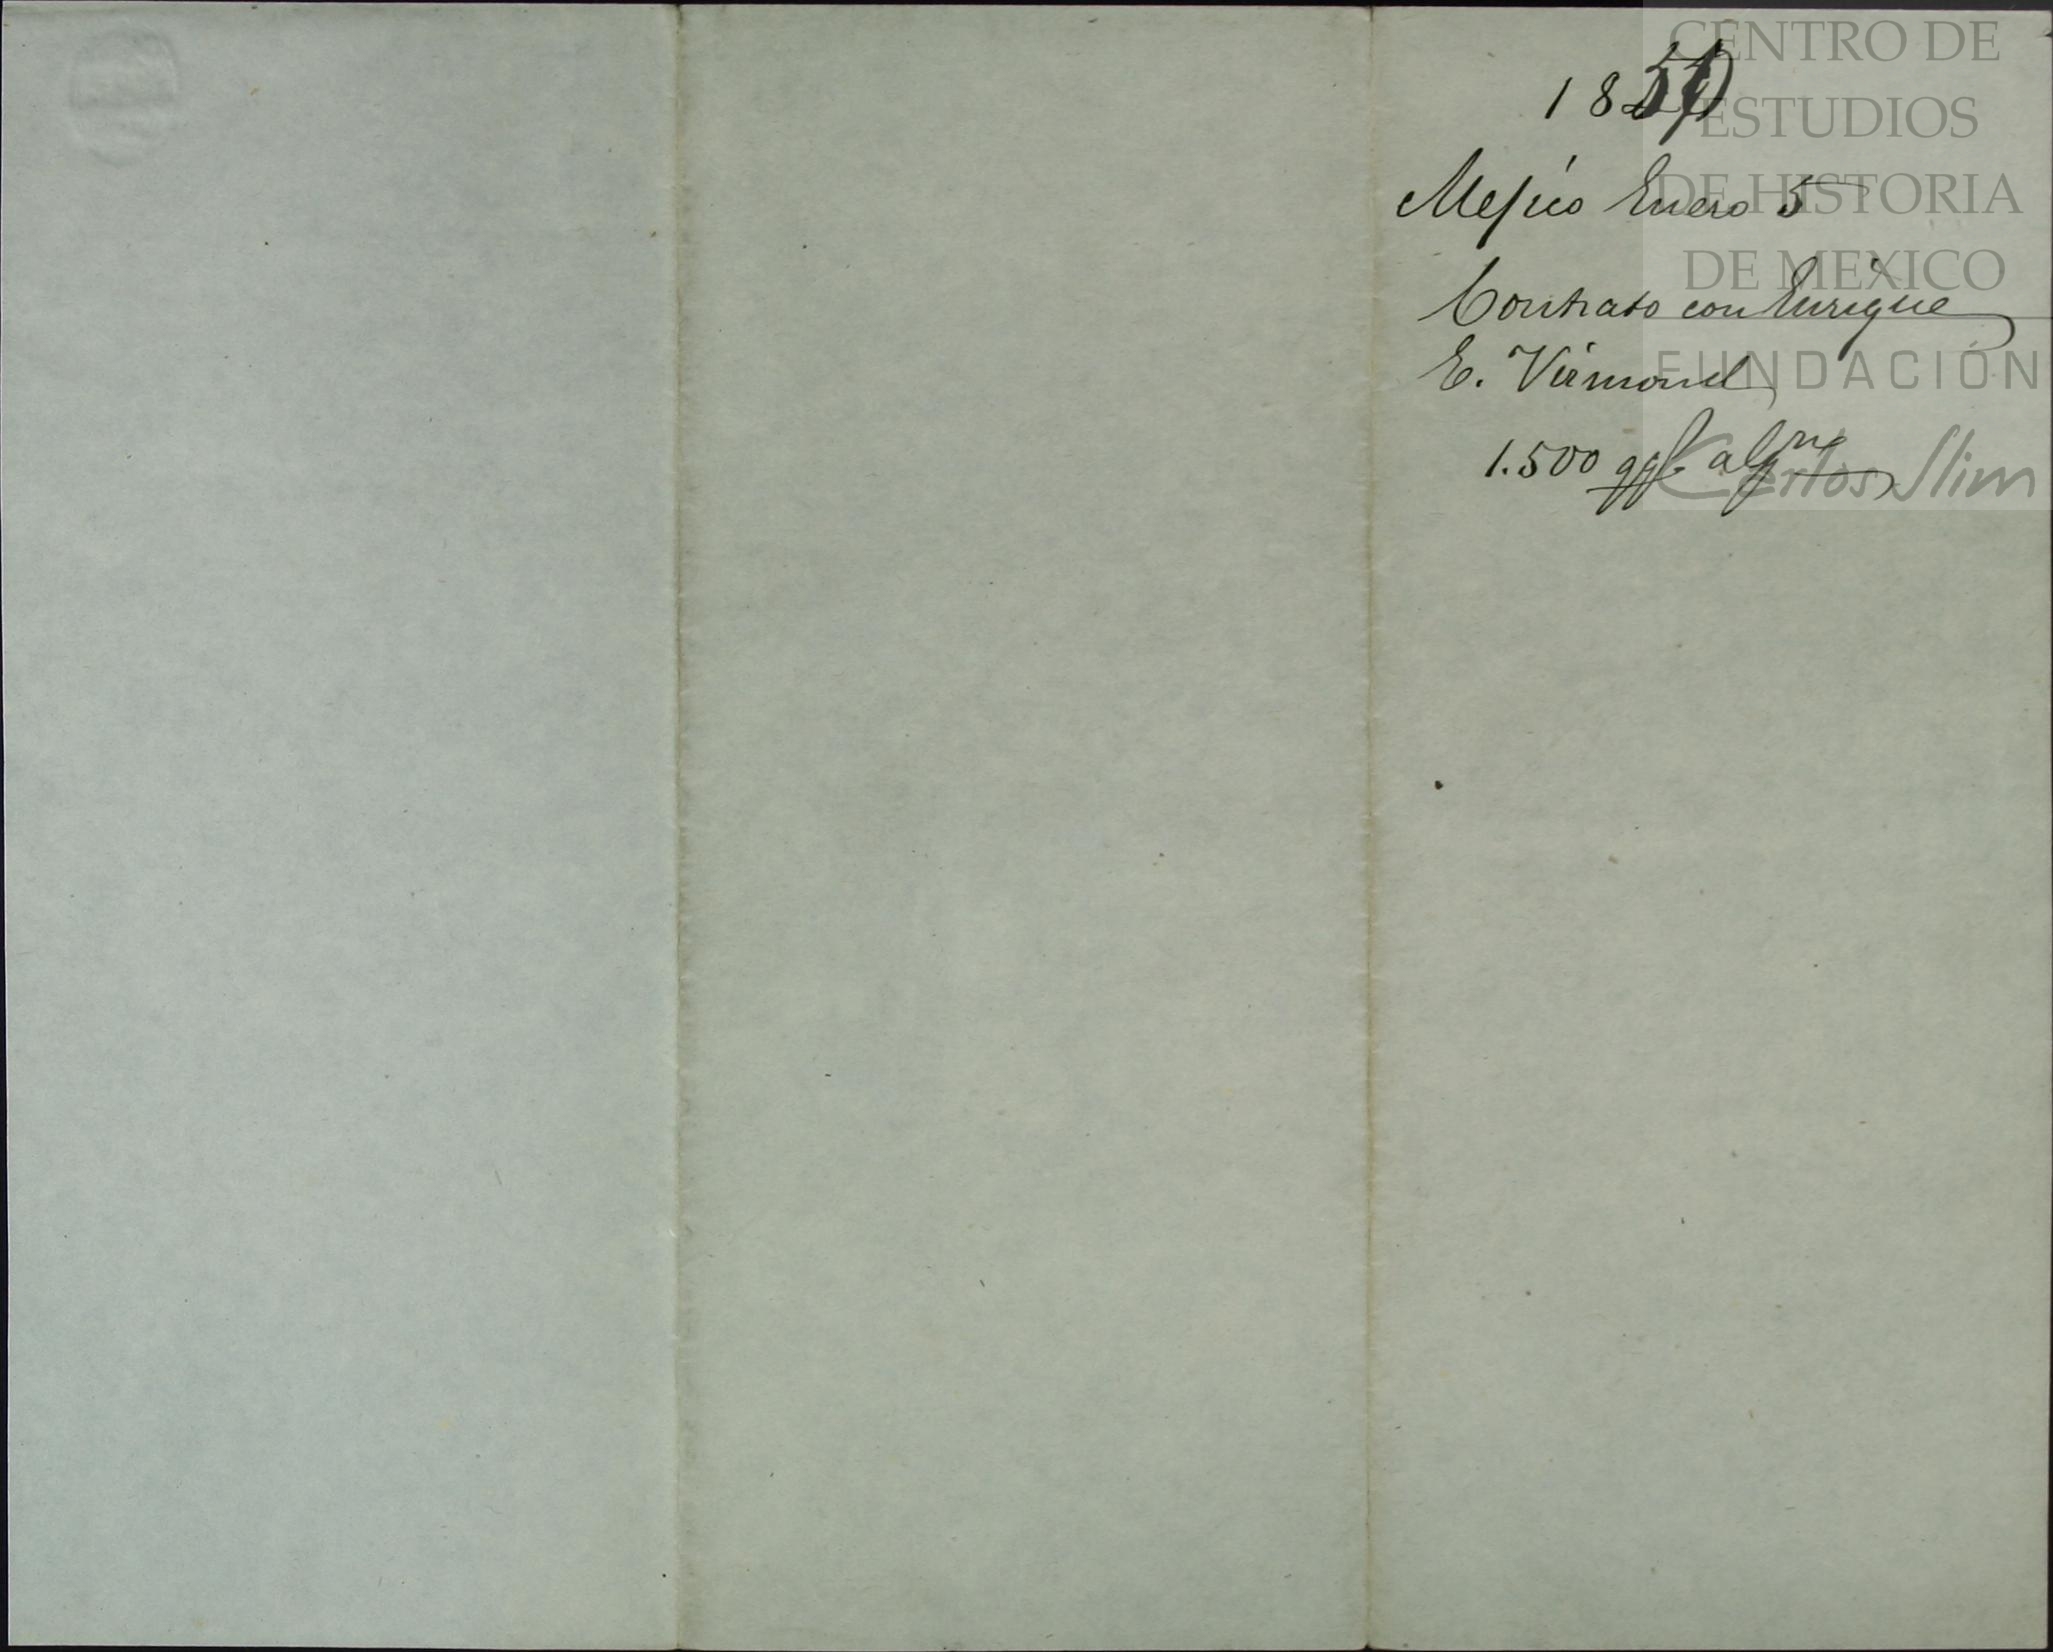 18
Mejico Enero 5
Contrato con Enrique
E. Virmond
1.500 qq algne
CENTRO DE
ESTUDIOS
DE HISTORIA
DE MEXICO
FUNDACIÓN
Carlos Slim